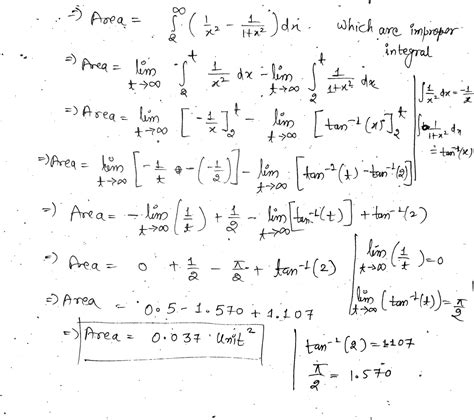 ⇒ Area = ∫₂^∞ (1/x² - 1/1+x²) dx which are improper integral
⇒ Area = lim t→∞ ∫₂^t 1/x² dx - lim t→∞ ∫₂^t 1/1+x² dx
∫ 1/x² dx = -1/x
⇒ Area = lim t→∞ [-1/x]₂^t - lim t→∞ [tan⁻¹(x)]₂^t
∫ 1/1+x² dx = tan⁻¹(x)
⇒ Area = lim t→∞ [-1/t - (-1/2)] - lim t→∞ [tan⁻¹(t) - tan⁻¹(2)]
⇒ Area = - lim t→∞ (1/t) + 1/2 - lim t→∞ [tan⁻¹(t)] + tan⁻¹(2)
⇒ Area = 0 + 1/2 - π/2 + tan⁻¹(2)
lim t→∞ (1/t) = 0
lim t→∞ (tan⁻¹(t)) = π/2
⇒ Area = 0.5 - 1.570 + 1.107
⇒ Area = 0.037 Unit²
tan⁻¹(2) = 1.107
π/2 = 1.570